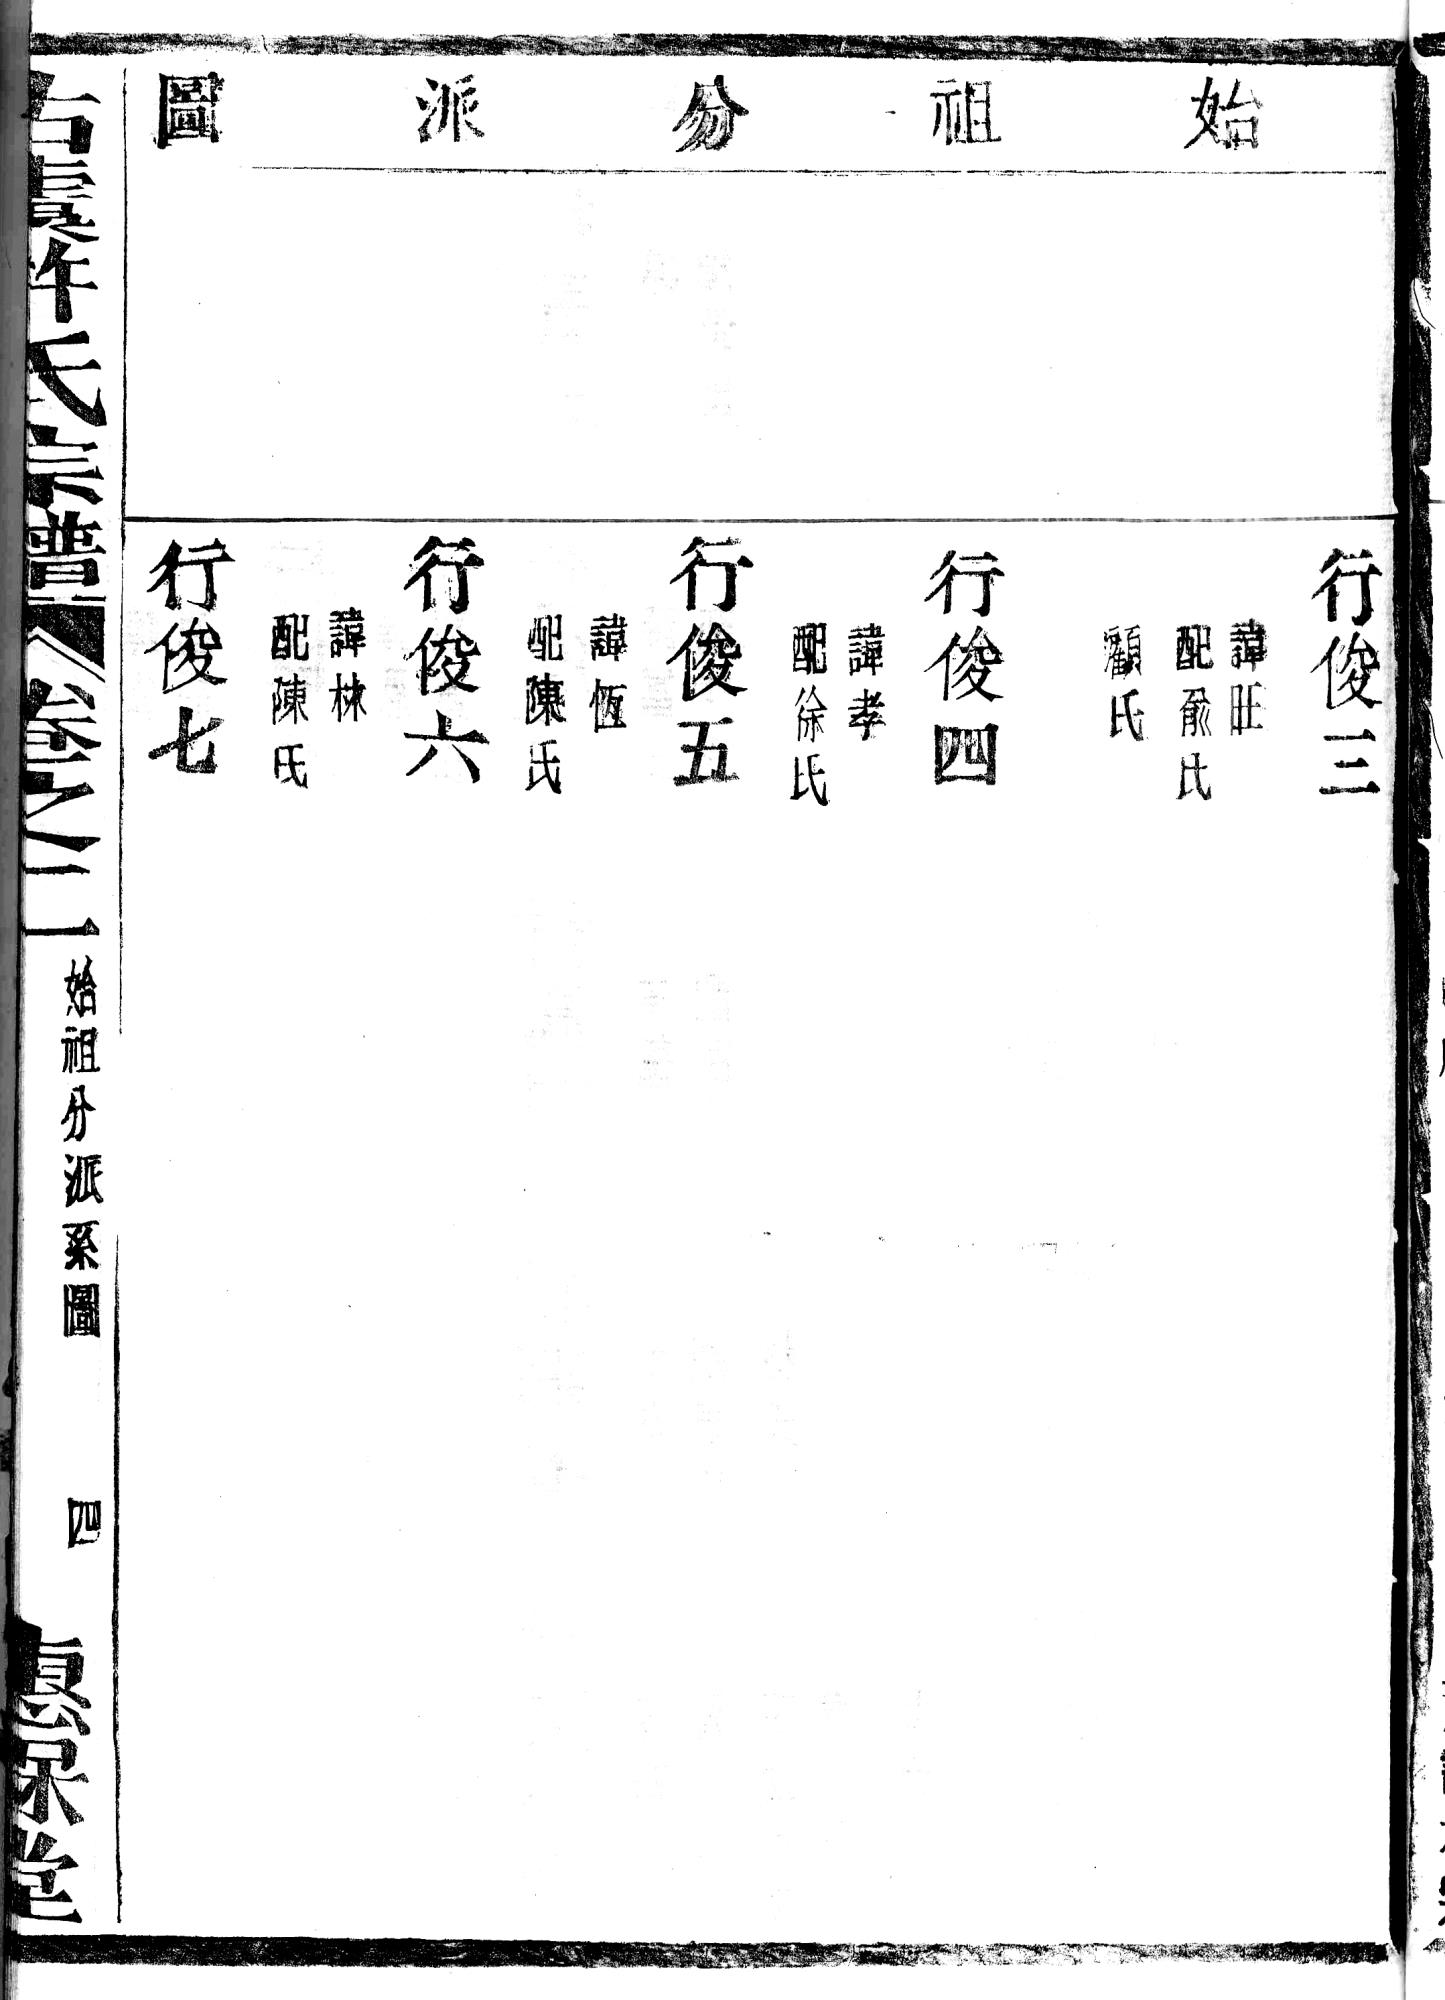 始祖分派圖
行俊三
諱旺
配俞氏
顧氏
行俊四
諱孝
配徐氏
行俊五
諱恆
配陳氏
行俊六
諱林
配陳氏
行俊七
古虞許氏宗譜
卷之二
始祖分派系圖
四
惠保堂